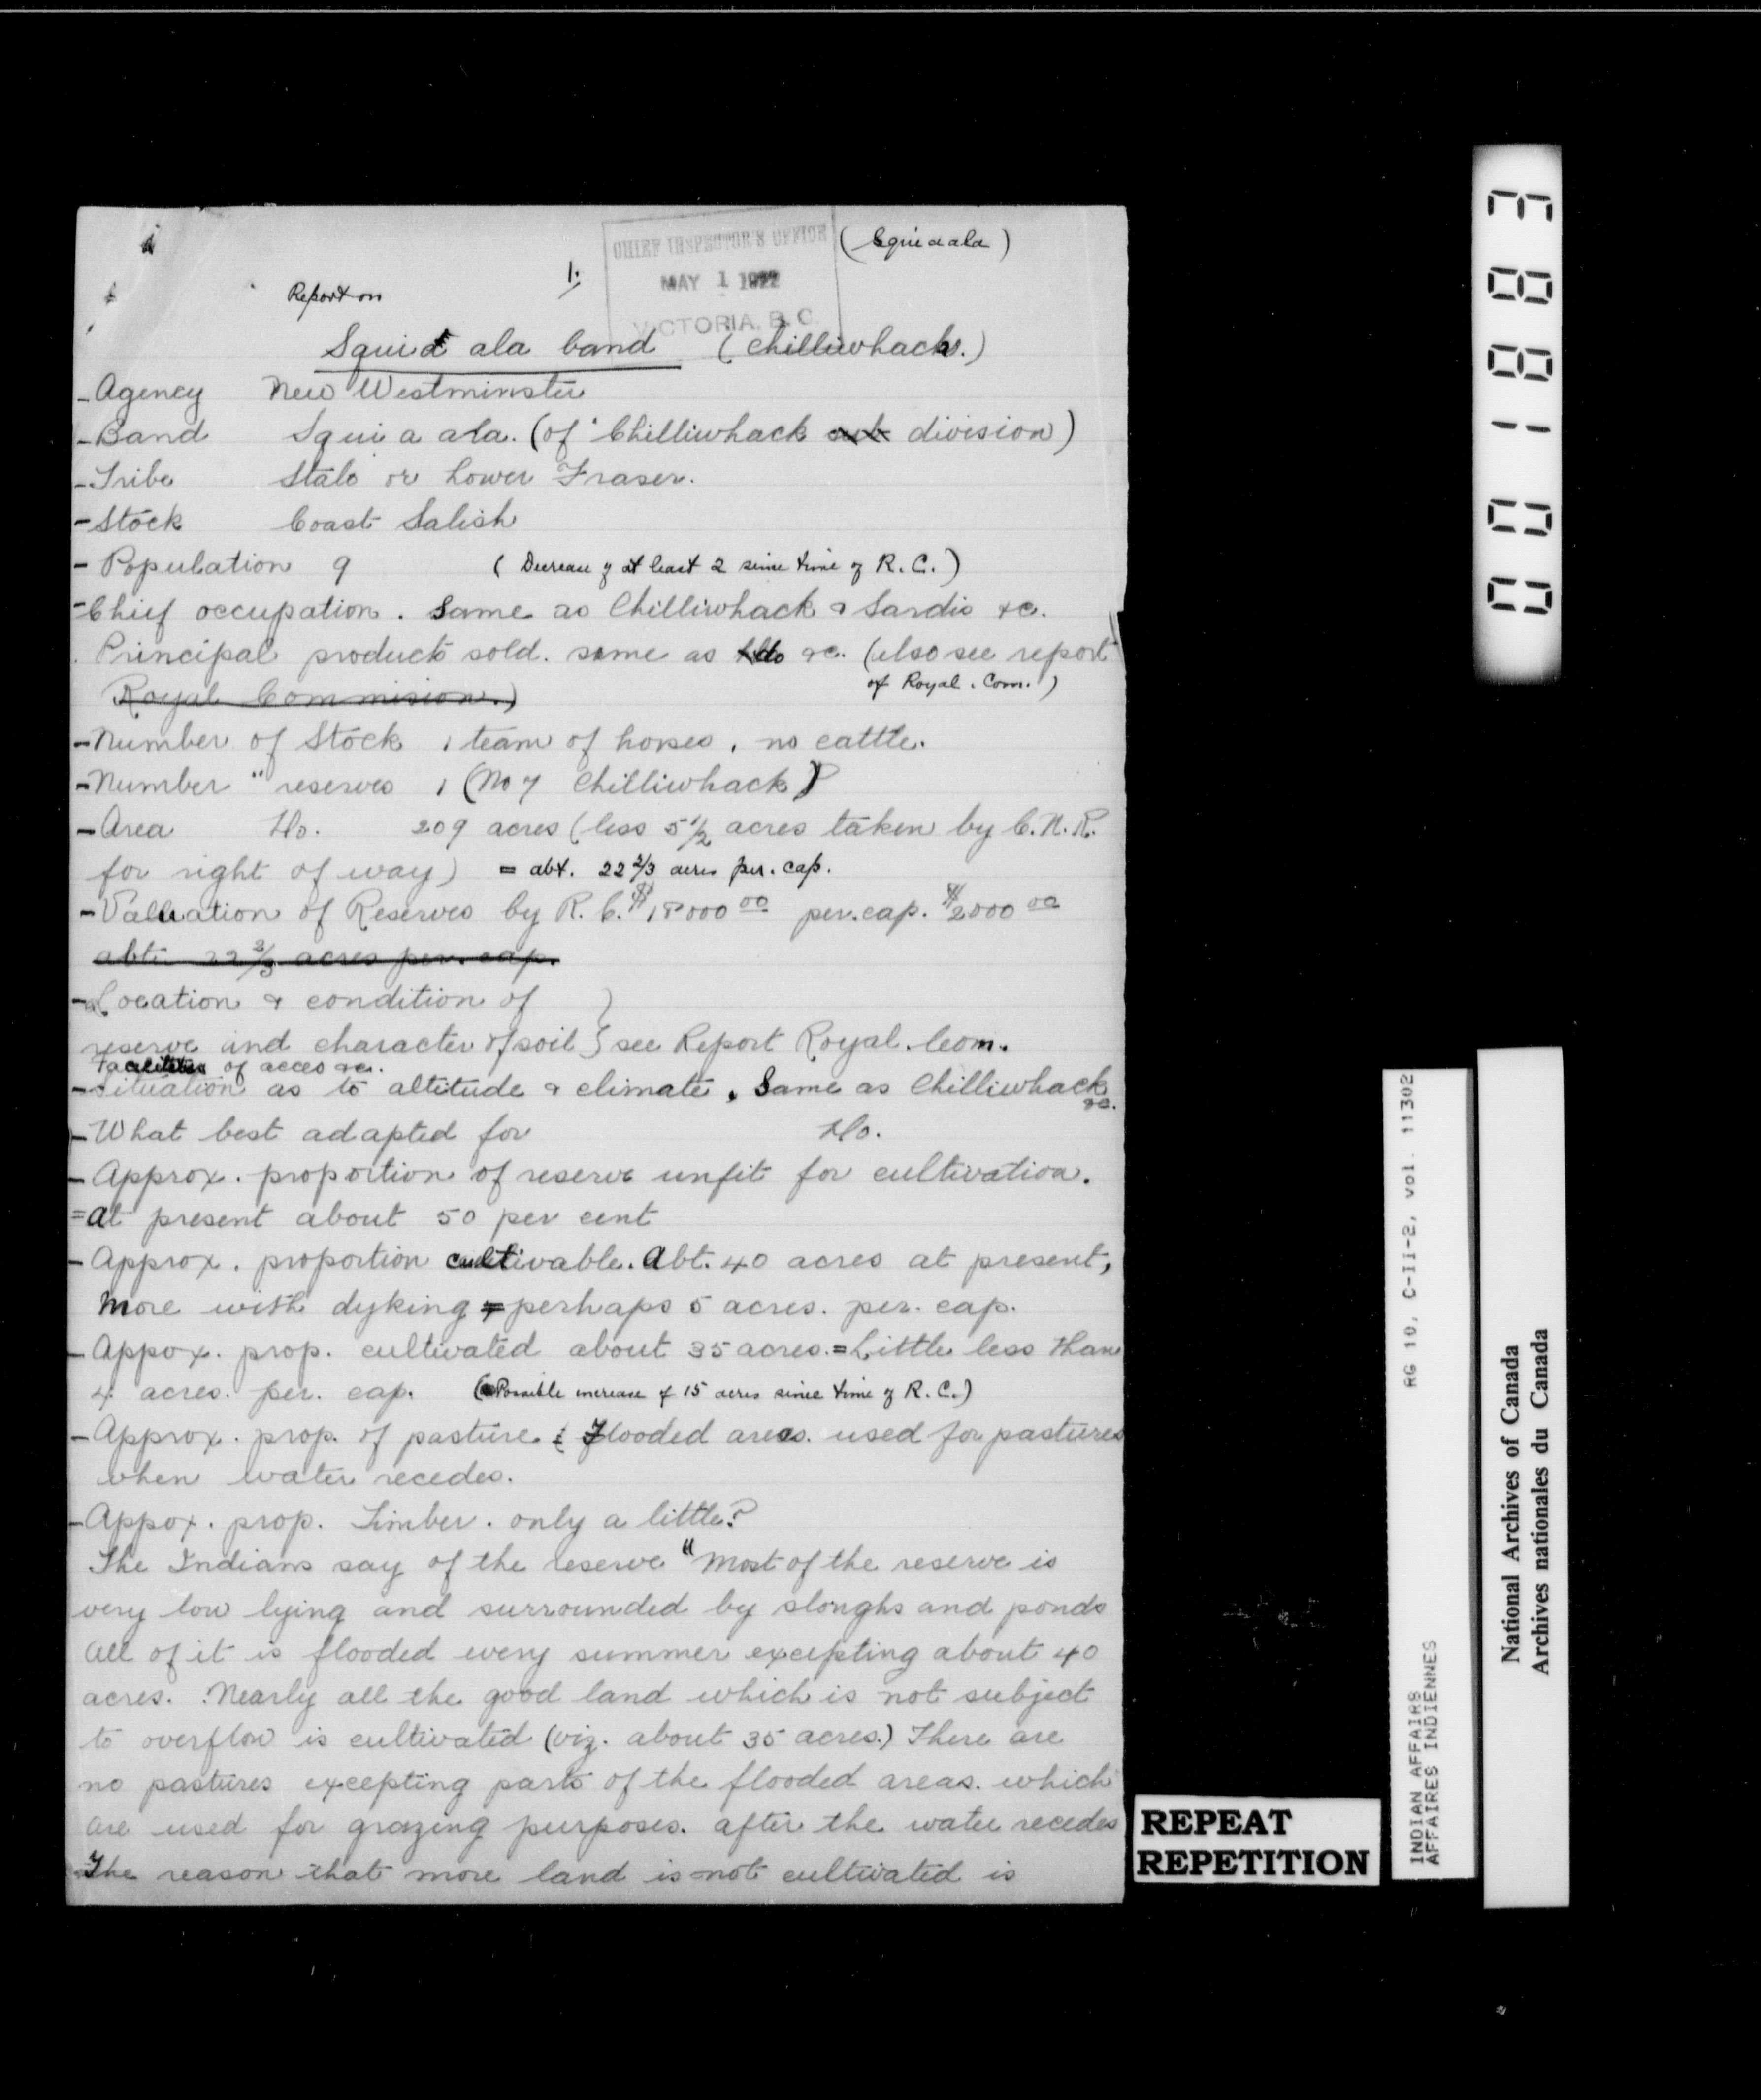 CHIEF INSPECTOR'S OFFICE
MAY 1 1922
VICTORIA, B.C.
1.
Report on
Squia ala band (Chilliwhack.)
- Agency New Westminster
- Band Squi a ala. (of Chilliwhack sub division)
- Tribe Stalo or Lower Fraser.
- Stock Coast Salish
- Population 9 (Decrease of at least 2 since time of R. C.)
- Chief occupation. Same as Chilliwhack & Sardis &c.
Principal products sold. same as do &c. (also see report
of Royal. Com.)
Royal Commision.)
- Number of Stock 1 team of horses, no cattle.
- Number " reserves 1 (No 7 Chilliwhack)
- Area Do. 209 acres (less 5 1/2 acres taken by C.N.R.
for right of way) = abt. 22 2/3 acres per. cap.
- Valuation of Reserves by R. C. $18000 00 per. cap. $2000 00
abt. 22 2/3 acres per. cap.
- Location & condition of }
reserve and character of soil } see Report Royal. Com.
Facilities of acces &c.
- situation as to altitude & climate. Same as Chilliwhack
&c.
- What best adapted for Do.
- Approx. proportion of reserve unfit for cultivation.
= at present about 50 per cent
- Approx. proportion cultivable. Abt. 40 acres at present,
More with dyking = perhaps 5 acres. per. cap.
- Appox. prop. cultivated about 35 acres. = Little less than
4 acres. per. cap. (Possible increase of 15 acres since time of R. C.)
- Approx. prop. of pasture : Flooded areas. used for pastures
when water recedes.
- Appox. prop. Timber. only a little?
The Indians say of the reserve "Most of the reserve is
very low lying and surrounded by sloughs and ponds
All of it is flooded every summer excepting about 40
acres. Nearly all the good land which is not subject
to overflow is cultivated (viz. about 35 acres.) There are
no pastures excepting parts of the flooded areas. which
are used for grazing purposes. after the water recedes
The reason that more land is not cultivated is
REPEAT
REPETITION
INDIAN AFFAIRS RG 10, C-II-2, vol. 11302
AFFAIRES INDIENNES
National Archives of Canada
Archives nationales du Canada
001883